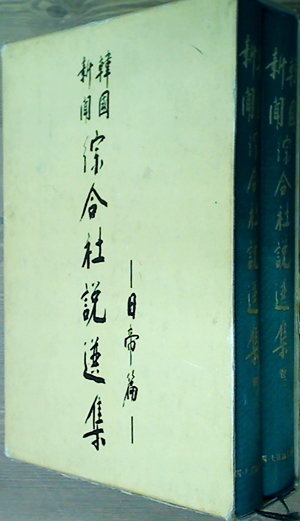 韓國
新聞
綜合社說選集
―日帝篇―
韓國
新聞
綜合社說選集
韓國
新聞
綜合社說選集